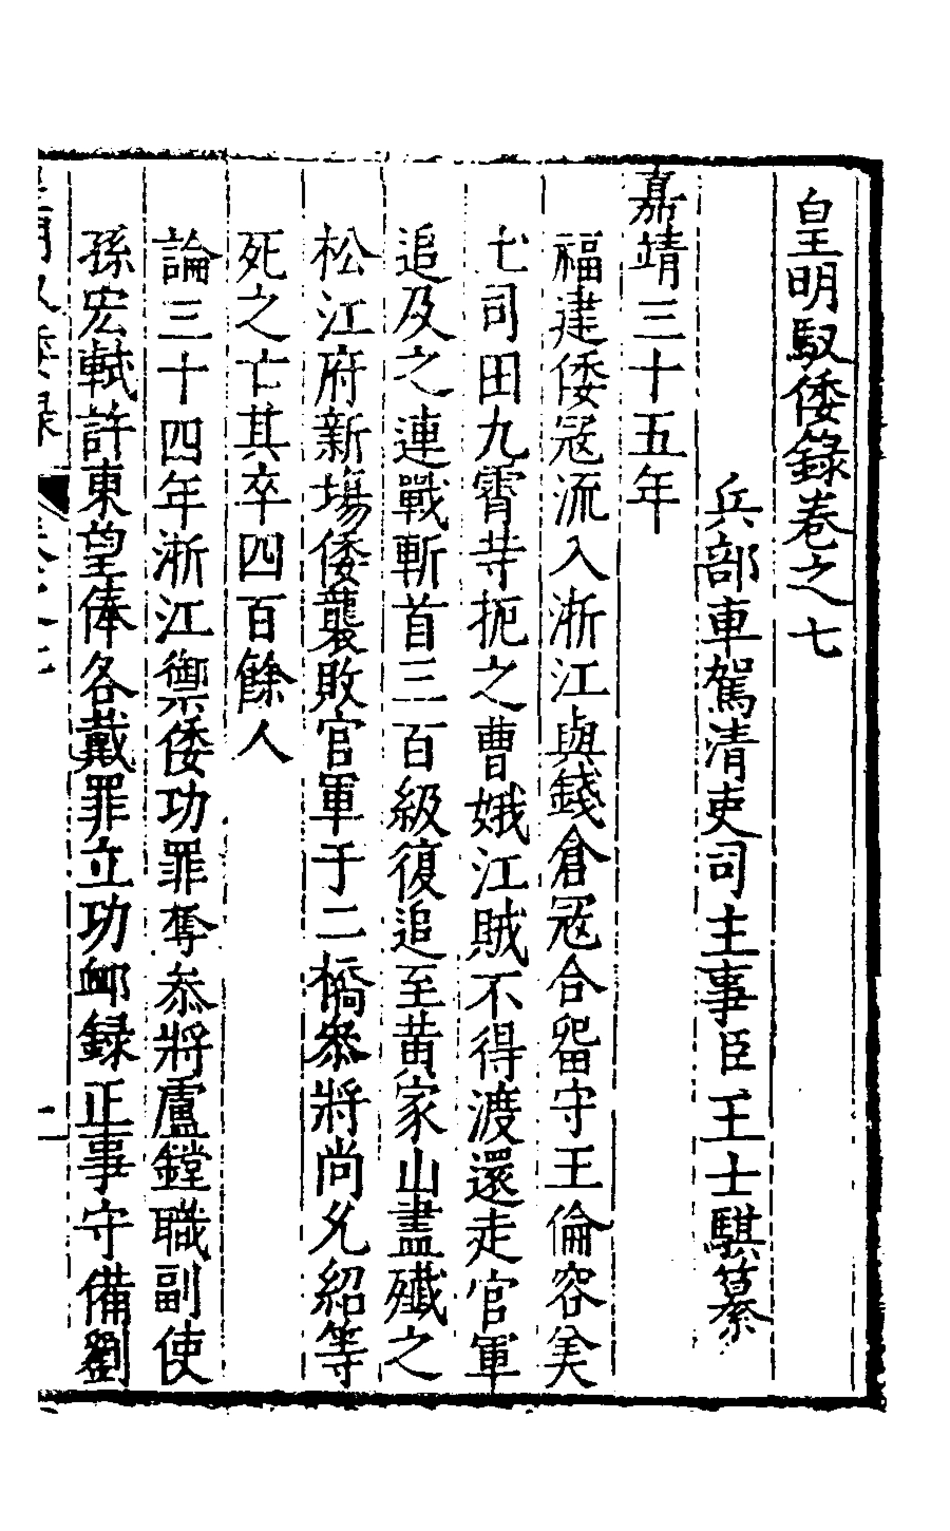 皇明馭倭錄卷之七
兵部車駕清吏司主事臣王士騏纂
嘉靖三十五年
福建倭寇流入浙江與錢倉寇合畱守王倫容美
七司田九霄䓁扼之曹娥江賊不得渡還走官軍
追及之連戰斬首三百級復追至黃家山盡殲之
松江府新塲倭襲敗官軍于二橋叅將尚允紹等
死之亡其卒四百餘人
論三十四年浙江禦倭功罪奪叅將盧鏜職副使
孫宏軾許東望俸各戴罪立功卹録正事守備劉